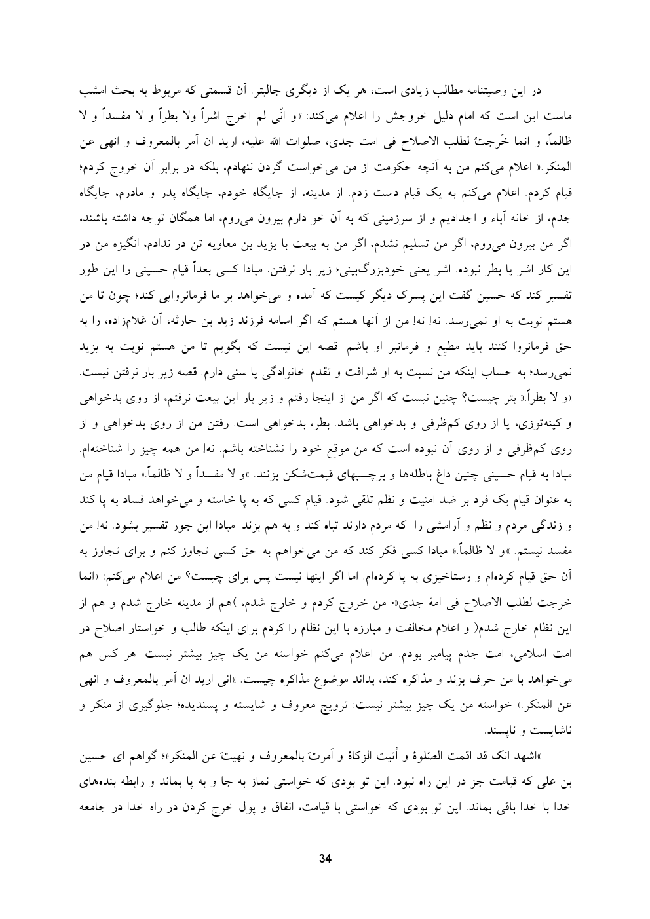 در این وصیتنامه مطالب زیادی است، هر یک از دیگری جالبتر. آن قسمتی که مربوط به بحث امشب
ماست این است که امام دلیل خروجش را اعلام می‌کند: «و انّی لم اخرج اشراً ولا بطراً و لا مفسداً و لا
ظالماً، و انما خَرجتُ لطلب الاصلاح فی امت جدی، صلوات الله علیه، ارید ان آمر بالمعروف و انهی عن
المنکر.» اعلام می‌کنم من به آنچه حکومت از من می‌خواست گردن ننهادم، بلکه در برابر آن خروج کردم؛
قیام کردم. اعلام می‌کنم به یک قیام دست زدم. از مدینه، از جایگاه خودم، جایگاه پدر و مادرم، جایگاه
جدم، از خانه آباء و اجدادیم و از سرزمینی که به آن خو دارم بیرون می‌روم، اما همگان توجه داشته باشند،
اگر من بیرون می‌روم، اگر من تسلیم نشدم، اگر من به بیعت با یزید بن معاویه تن در ندادم، انگیزه من در
این کار اشر یا بطر نبوده. اشر یعنی خودبزرگ‌بینی؛ زیر بار نرفتن. مبادا کسی بعداً قیام حسینی را این طور
تفسیر کند که حسین گفت این پسرک دیگر کیست که آمده و می‌خواهد بر ما فرمانروایی کند؛ چون تا من
هستم نوبت به او نمی‌رسد. نه! نه! من از آنها هستم که اگر اسامه فرزند زید بن حارثه، آن غلام‌زاده، را به
حق فرمانروا کنند باید مطیع و فرمانبر او باشم. قصه این نیست که بگویم تا من هستم نوبت به یزید
نمی‌رسد؛ به حساب اینکه من نسبت به او شرافت و تقدم خانوادگی یا سنی دارم. قصه زیر بار نرفتن نیست.
«و لا بطراً.» بتر چیست؟ چنین نیست که اگر من از اینجا رفتم و زیر بار این بیعت نرفتم، از روی بدخواهی
و کینه‌توزی، یا از روی کم‌ظرفی و بدخواهی باشد. بطر، بدخواهی است. رفتن من از روی بدخواهی و از
روی کم‌ظرفی و از روی آن نبوده است که من موقع خود را نشناخته باشم. نه! من همه چیز را شناخته‌ام.
مبادا به قیام حسینی چنین داغ باطله‌ها و برچسبهای قیمت‌شکن بزنند. «و لا مفسداً و لا ظالماً.» مبادا قیام من
به عنوان قیام یک فرد بر ضد امنیت و نظم تلقی شود. قیام کسی که به پا خاسته و می‌خواهد فساد به پا کند
و زندگی مردم و نظم و آرامشی را که مردم دارند تباه کند و به هم بزند. مبادا این جور تفسیر بشود. نه! من
مفسد نیستم. «و لا ظالماً.» مبادا کسی فکر کند که من می‌خواهم به حق کسی تجاوز کنم و برای تجاوز به
آن حق قیام کرده‌ام و رستاخیزی به پا کرده‌ام. اما اگر اینها نیست پس برای چیست؟ من اعلام می‌کنم: «انما
خرجت لطلب الاصلاح فی امة جدی»، من خروج کردم و خارج شدم، )هم از مدینه خارج شدم و هم از
این نظام خارج شدم( و اعلام مخالفت و مبارزه با این نظام را کردم برای اینکه طالب و خواستار اصلاح در
امت اسلامی، امت جدم پیامبر بودم. من اعلام می‌کنم خواسته من یک چیز بیشتر نیست. هر کس هم
می‌خواهد با من حرف بزند و مذاکره کند، بداند موضوع مذاکره چیست. «انی ارید ان آمر بالمعروف و انهی
عن المنکر.» خواسته من یک چیز بیشتر نیست: ترویج معروف و شایسته و پسندیده؛ جلوگیری از منکر و
ناشایست و ناپسند.
«اشهد انک قد اقمت الصّلوة و أتیت الزّکاة و أمرت بالمعروف و نهیت عن المنکر»؛ گواهم ای حسین
بن علی که قیامت جز در این راه نبود. این تو بودی که خواستی نماز به جا و به پا بماند و رابطه بنده‌های
خدا با خدا باقی بماند. این تو بودی که خواستی با قیامت، انفاق و پول خرج کردن در راه خدا در جامعه
34